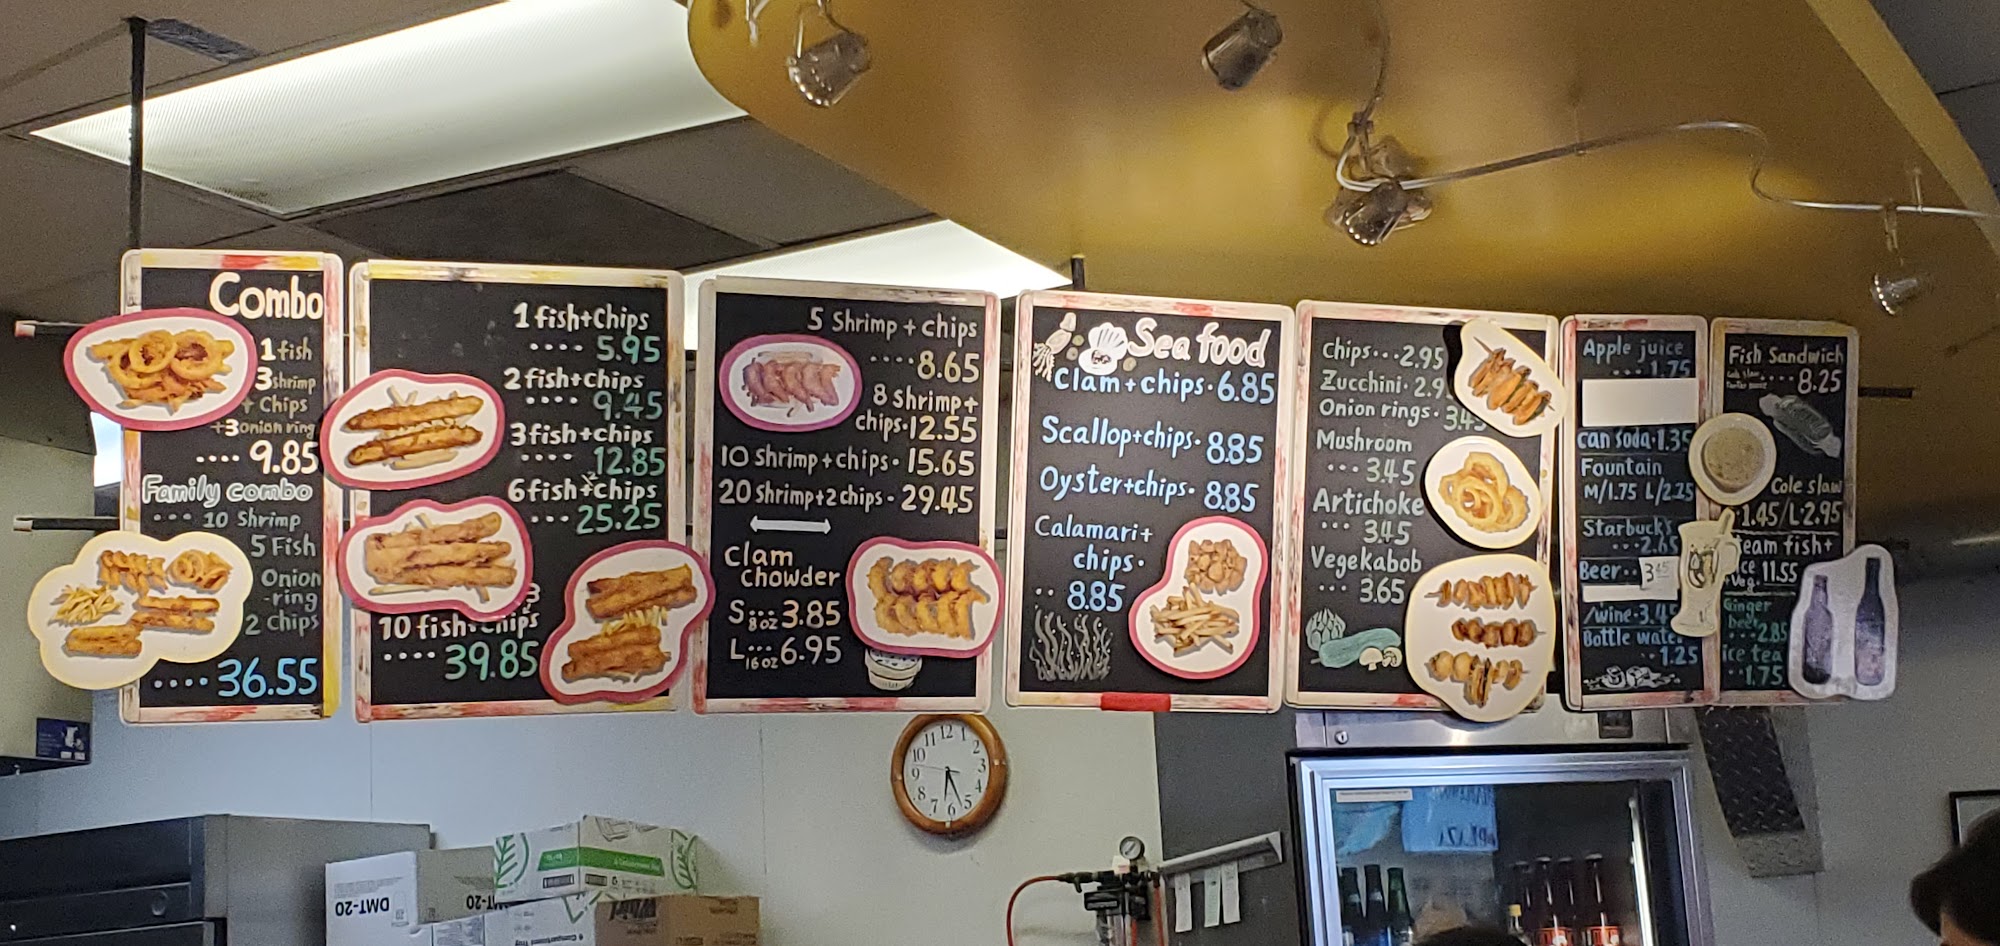 Combo
1 fish
3 shrimp
+ Chips
+3 onion ring
.... 9.85
Family combo
... 10 Shrimp
5 Fish
Onion
-ring
2 Chips
.... 36.55
1 fish+Chips
.... 5.95
2 fish+chips
.... 9.45
3 fish+chips
.... 12.85
6 fish+chips
... 25.25
10 fish+chips
.... 39.85
5 Shrimp + chips
.... 8.65
8 Shrimp+
chips. 12.55
10 Shrimp+chips. 15.65
20 Shrimp+2 chips. 29.45
Clam
Chowder
S 8oz ... 3.85
L 16oz ... 6.95
Sea food
Clam+chips. 6.85
Scallop+chips. 8.85
Oyster+chips. 8.85
Calamari+
chips.
.. 8.85
Chips... 2.95
Zucchini. 2.9
Onion rings. 3.45
Mushroom
... 3.45
Artichoke
... 3.45
Vegekabob
... 3.65
Apple juice
... 1.75
can soda. 1.35
Fountain
M/1.75 L/2.25
Starbuck's
.. 2.65
Beer.. 3.45
/wine. 3.45
Bottle water
.. 1.25
Fish Sandwich
.... 8.25
Cole slaw
1.45/L 2.95
team fish+
ice +Veg. 11.55
Ginger
beer
... 2.85
ice tea
.. 1.75
12 1 2 3 4 5 6 7 8 9 10 11
DMT-20
DMT-20
Whirl